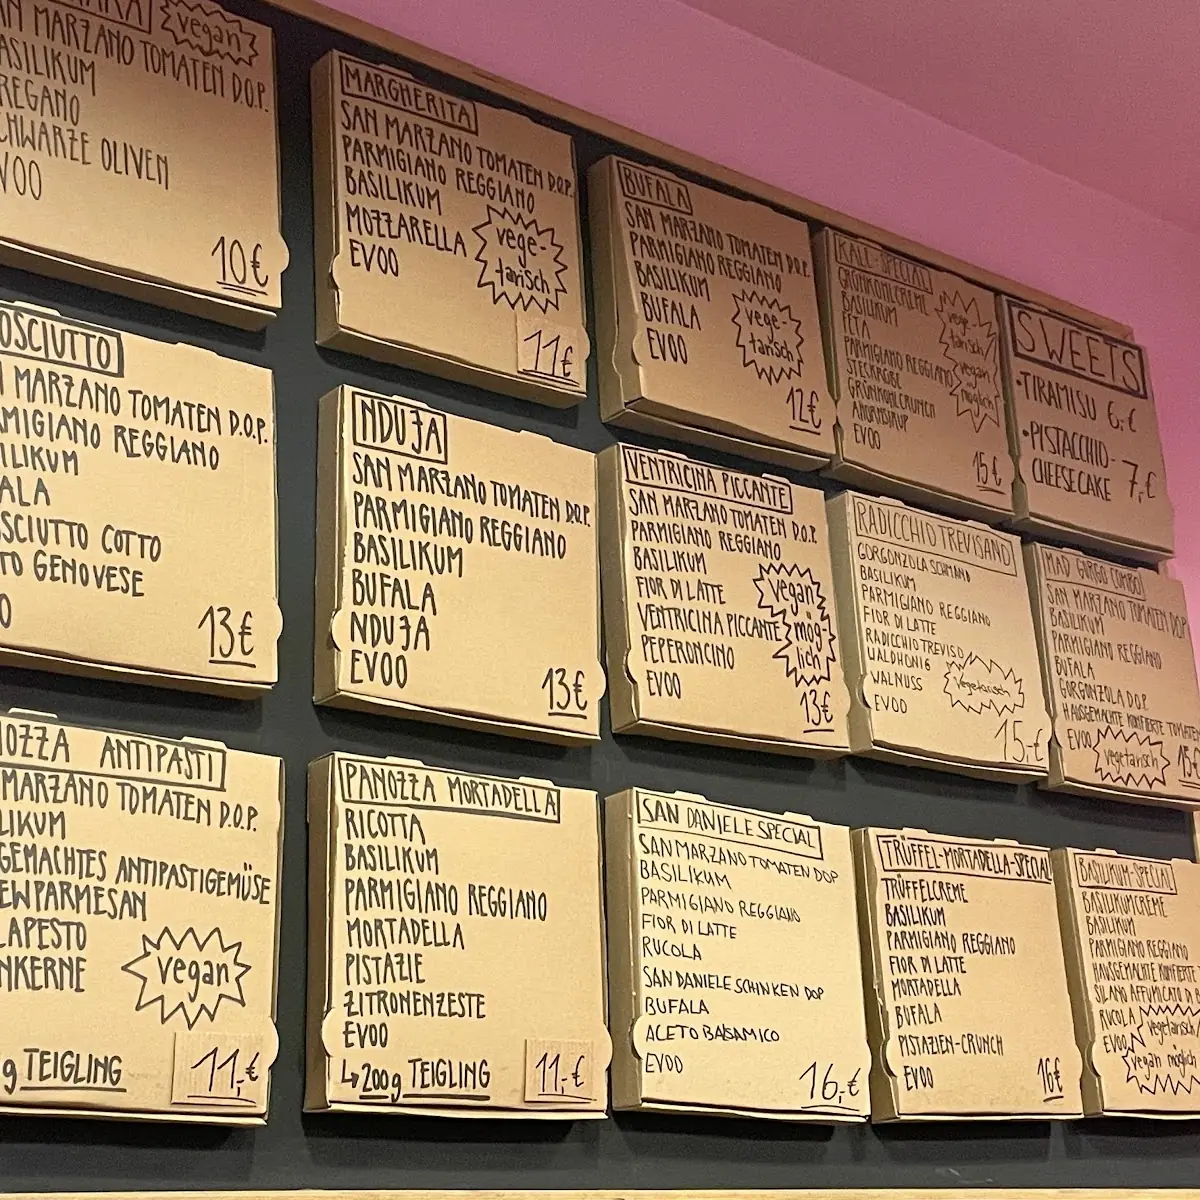 vegan
SAN MARZANO TOMATEN D.O.P.
BASILIKUM
OREGANO
SCHWARZE OLIVEN
EVOO
10€
MARGHERITA
SAN MARZANO TOMATEN D.O.P.
PARMIGIANO REGGIANO
BASILIKUM
MOZZARELLA
EVOO
vege-
tarisch
11€
BUFALA
SAN MARZANO TOMATEN D.O.P.
PARMIGIANO REGGIANO
BASILIKUM
BUFALA
EVOO
vege-
tarisch
12€
KALE-SPECIAL
GRÜNKOHLCREME
BASILIKUM
FETA
PARMIGIANO REGGIANO
STECKRÜBE
GRÜNKOHLCRUNCH
AHORNSIRUP
EVOO
vege-
tarisch/
vegan
möglich
15€
SWEETS
•TIRAMISU 6,-€
•PISTACCHIO-
CHEESECAKE 7,-€
OSCIUTTO
MARZANO TOMATEN D.O.P.
RMIGIANO REGGIANO
ILIKUM
ALA
SCIUTTO COTTO
TO GENOVESE
O
13€
NDUJA
SAN MARZANO TOMATEN D.O.P.
PARMIGIANO REGGIANO
BASILIKUM
BUFALA
NDUJA
EVOO
13€
VENTRICINA PICCANTE
SAN MARZANO TOMATEN D.O.P.
PARMIGIANO REGGIANO
BASILIKUM
FIOR DI LATTE
VENTRICINA PICCANTE
PEPERONCINO
EVOO
vegan
mög-
lich
13€
RADICCHIO TREVISANO
GORGONZOLA SCHMAND
BASILIKUM
PARMIGIANO REGGIANO
FIOR DI LATTE
RADICCHIO TREVISO
WALDHONIG
WALNUSS
EVOO
vegetarisch
15,-€
MAD GORGO COMBO
SAN MARZANO TOMATEN DOP
BASILIKUM
PARMIGIANO REGGIANO
BUFALA
GORGONZOLA D.O.P.
HAUSGEMACHTE KONFIERTE TOMATEN
EVOO
vegetarisch
15€
NOZZA ANTIPASTI
MARZANO TOMATEN D.O.P.
LIKUM
GEMACHTES ANTIPASTIGEMÜSE
EWPARMESAN
LAPESTO
NKERNE
vegan
g TEIGLING
11,-€
PANOZZA MORTADELLA
RICOTTA
BASILIKUM
PARMIGIANO REGGIANO
MORTADELLA
PISTAZIE
ZITRONENZESTE
EVOO
↳200g TEIGLING
11,-€
SAN DANIELE SPECIAL
SAN MARZANO TOMATEN DOP
BASILIKUM
PARMIGIANO REGGIANO
FIOR DI LATTE
RUCOLA
SAN DANIELE SCHINKEN DOP
BUFALA
ACETO BALSAMICO
EVOO
16,-€
TRÜFFEL-MORTADELLA-SPECIAL
TRÜFFELCREME
BASILIKUM
PARMIGIANO REGGIANO
FIOR DI LATTE
MORTADELLA
BUFALA
PISTAZIEN-CRUNCH
EVOO
16€
BASILIKUM-SPECIAL
BASILIKUMCREME
BASILIKUM
PARMIGIANO REGGIANO
HAUSGEMACHTE KONFIERTE
SILANO AFFUMICATO DI B
RUCOLA
EVOO
vegetarisch/
vegan möglich